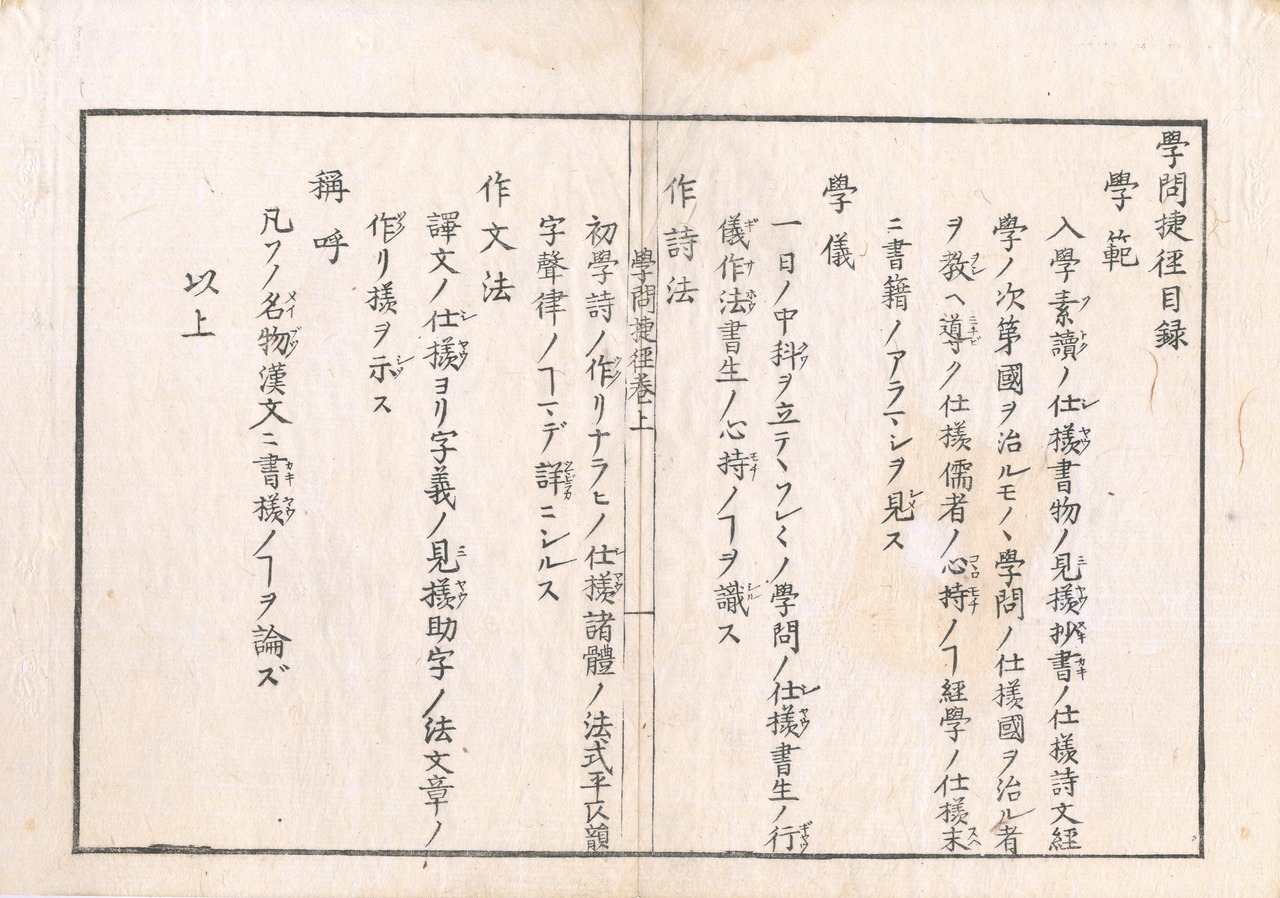 學問捷徑目録
學範
入學素讀ノ仕樣書物ノ見樣抄書ノ仕樣詩文經
學ノ次第國ヲ治ルモノヽ學問ノ仕樣國ヲ治ル者
ヲ教ヘ導ク仕樣儒者ノ心持ノヿ經學ノ仕樣末
ニ書籍ノアラマシヲ見ス
學儀
一日ノ中科ヲ立テヽソレ〱ノ學問ノ仕樣書生ノ行
儀作法書生ノ心持ノヿヲ識ス
作詩法
初學詩ノ作リナラヒノ仕樣諸體ノ法式平仄韻
字聲律ノヿマデ詳ニシルス
作文法
譯文ノ仕樣ヨリ字義ノ見樣助字ノ法文章ノ
作リ樣ヲ示ス
稱呼
凡ソノ名物漢文ニ書樣ノヿヲ論ズ
以上
學問捷徑卷上
一